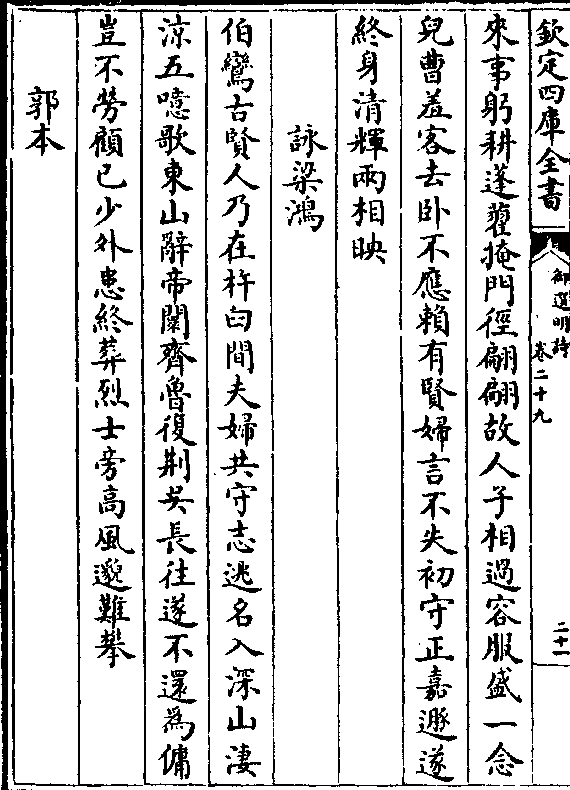 欽定四庫全書
御選明詩
卷二十九
二十一
來事躬耕蓬藋掩門徑翩翩故人子相過容服盛一念
兒曹羞客去卧不應賴有賢婦言不失初守正嘉遯遂
終身清輝兩相映
詠梁鴻
伯鸞古賢人乃在杵臼間夫婦共守志逃名入深山淒
涼五噫歌東山辭帝闕齊魯復荆吳長往遂不還為傭
豈不勞顧已少外患終葬烈士旁高風邈難攀
郭本